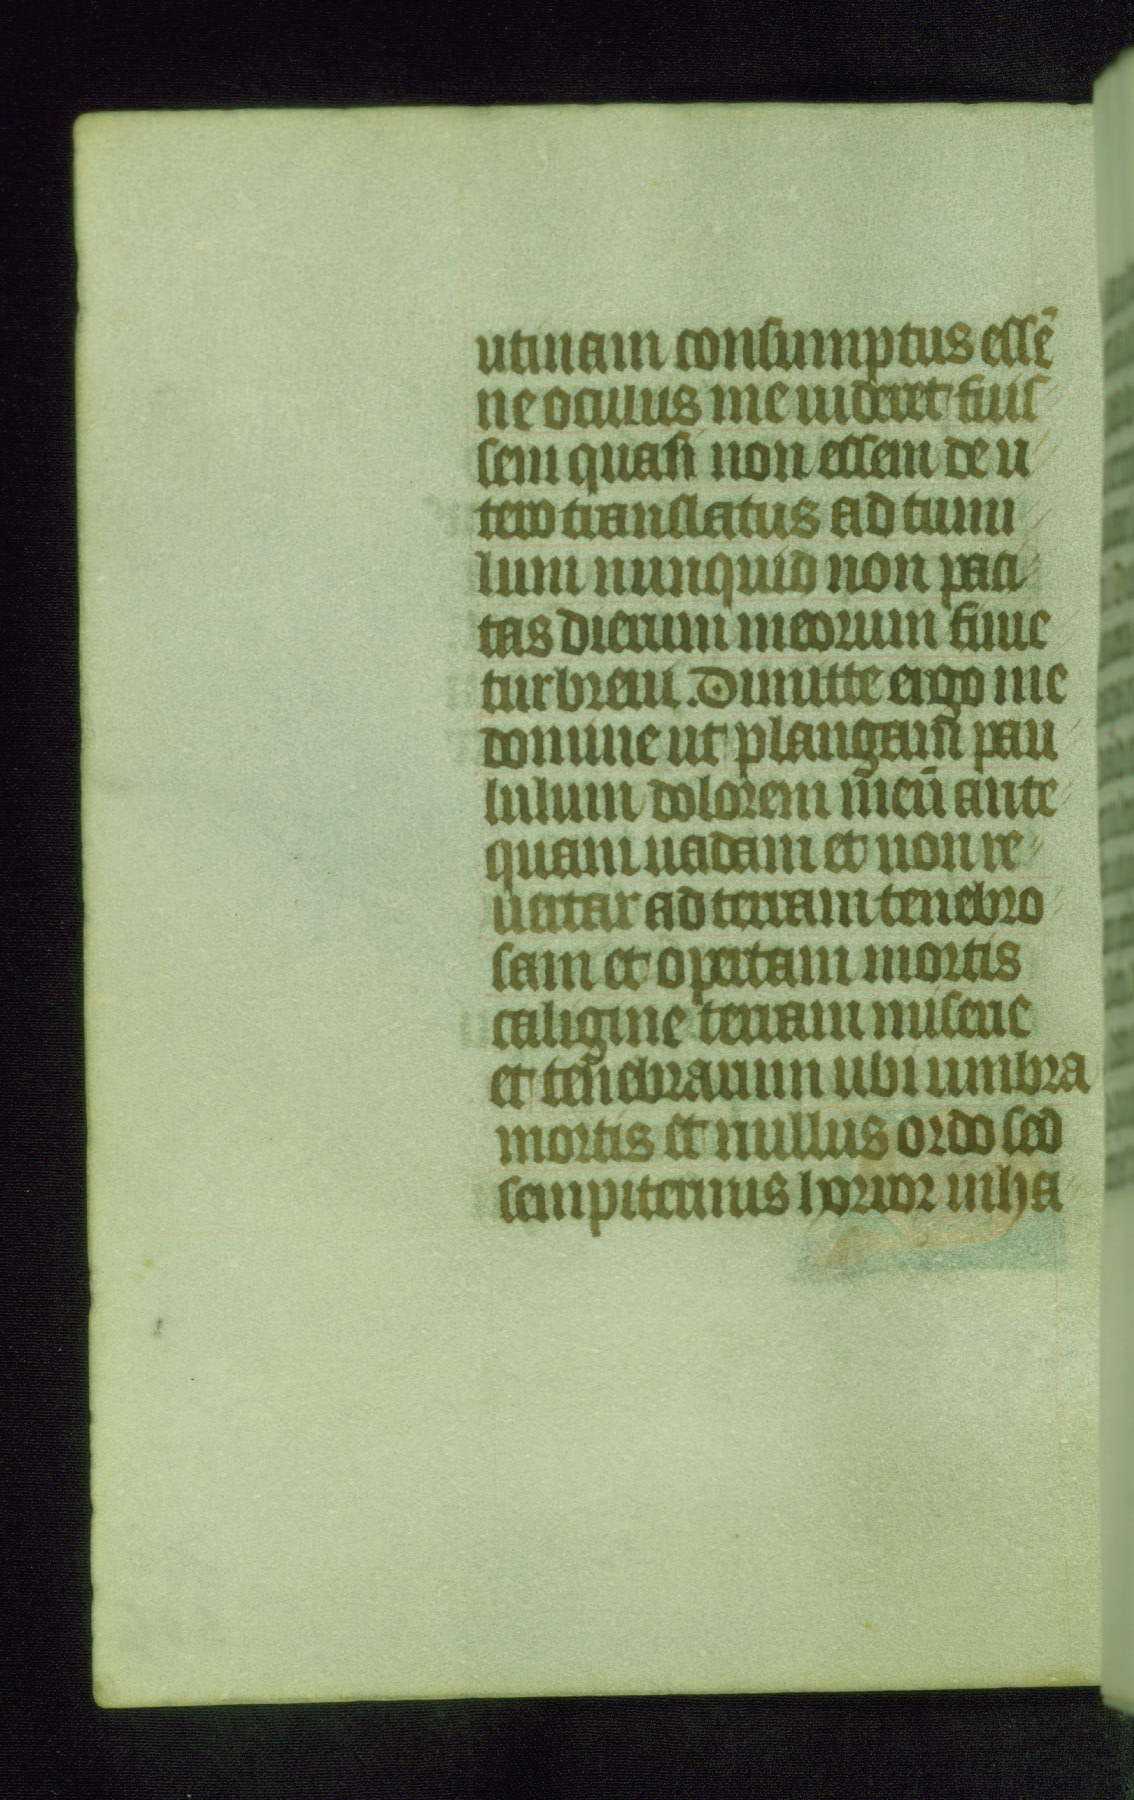 utinam consumptus essē
ne oculus me uideret fuis
sem quasi non essem de u
tero translatus ad tumu
lum nunquid non pauci
tas dierum meorum finie
tur breui. Dimitte ergo me
domine ut plangam pau
lulum dolorem meū ante
quam uadam et non re
uertar ad terram tenebro
sam et opertam mortis
caligine terram miserie
et tenebrarum ubi umbra
mortis et nullus ordo sed
sempiternus horror inha